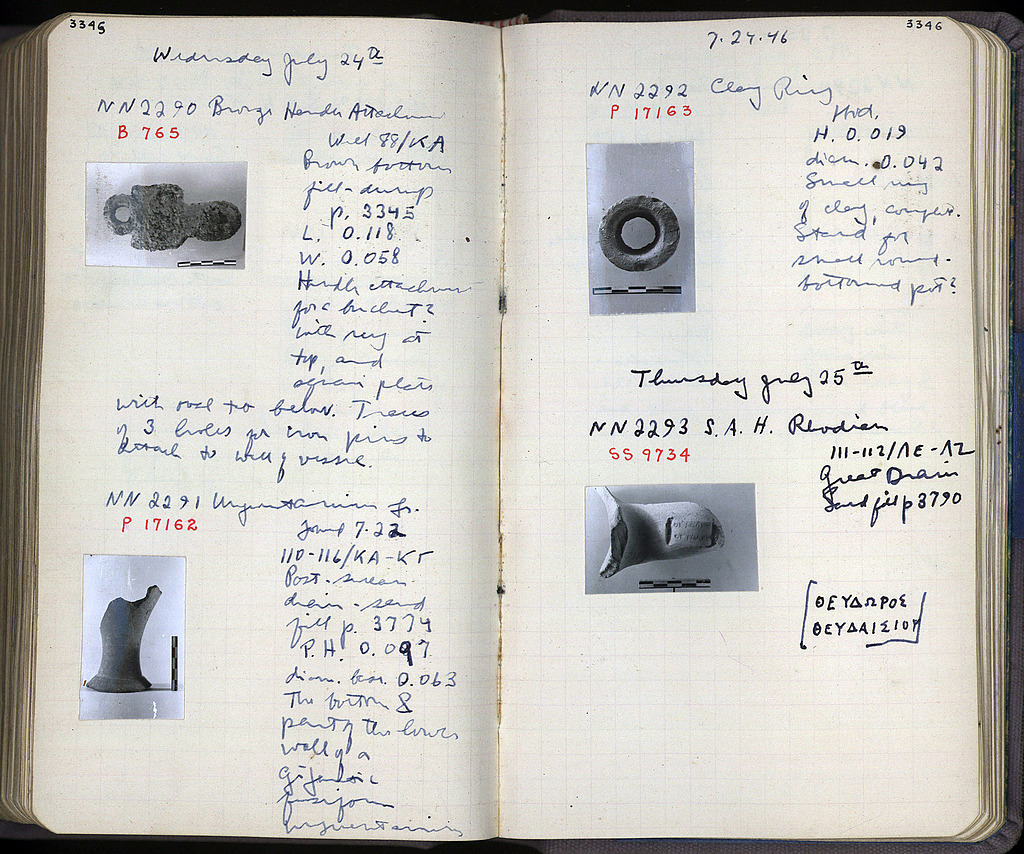 3345
Wednesday July 24th
NN 2290 Bronze Handle Attachment
B 765
Well 88/KA
Brown bottom
fill-dump
p. 3345
L. 0.118
W. 0.058
Handle attachment
for a bucket?
with ring at
top, and
square plate
with oval below. Traces
of 3 holes for iron pins to
attach to wall of vessel.
NN 2291 Unguentarium fr.
P 17162
found 7.22
110-116/KA-KΓ
Post-
drain-sand
fill p. 3774
P.H. 0.097
diam. base. 0.063
The bottom &
part of the lower
wall of a
gigantic
fusiform
unguentarium
3346
7.24.46
NN 2292 Clay Ring
P 17163
H. 0.019
diam. 0.042
Small ring
of clay, complet.
Stand for
small round-
bottomed pot?
Thursday July 25th
NN 2293 S.A.H. Rhodian
SS 9734
111-112/ΛE-ΛZ
Great Drain
Sand fill p 3790
ΘΕΥΔΩΡΟΣ
ΘΕΥΔΑΙΣΙΟΥ